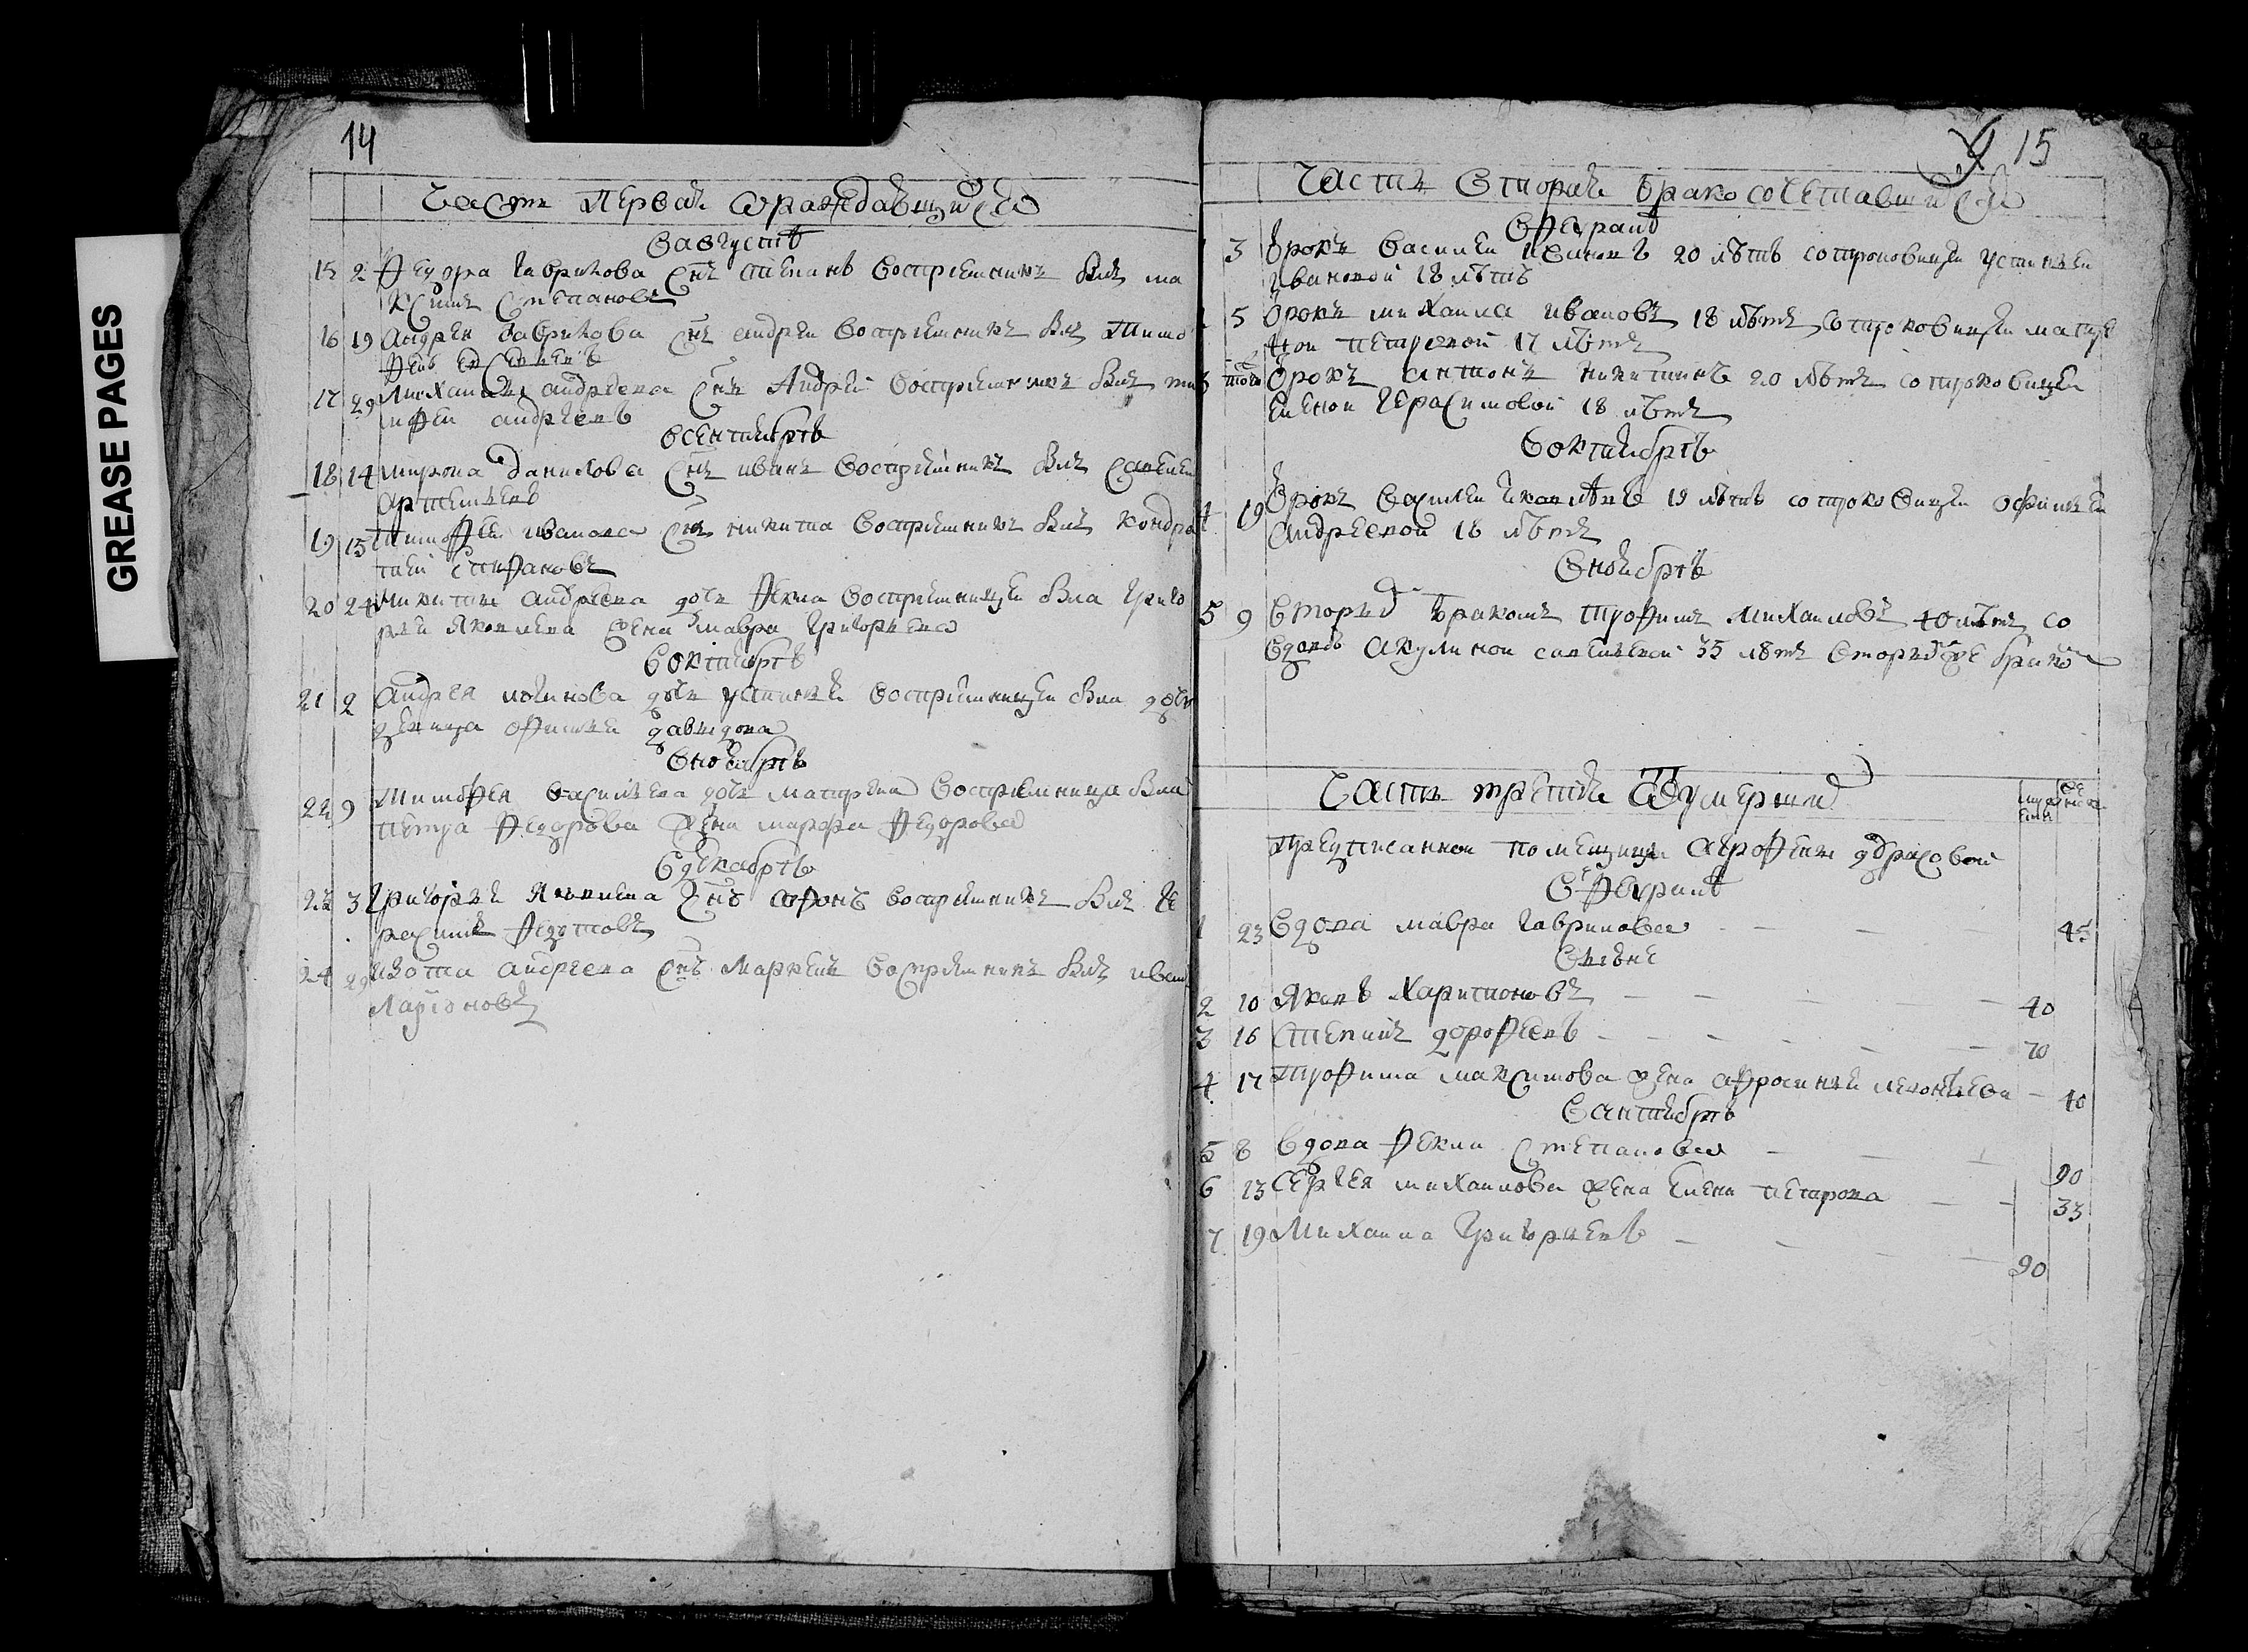 GREASE PAGES
14
Часть первая ѡраждавшихся
В августѣ
15 2 Федора Гаврилова снъ Степанъ восприемникъ былъ ма
ксимъ Степановъ
16 19 Андрея Гаврилова снъ Андреи восприемникъ былъ Тимо
фей
17 29 Михаила Андреева снъ Андрей восприемникъ былъ ти
мофеи Андреевъ
В сентябрѣ
18 14 Мирона Данилова снъ иванъ восприемникъ былъ савелеи
Артемьевъ
19 15 Тимофея иванова снъ никита восприемникъ былъ кондра
теи Стефановъ
20 24 Никиты Андреева дочь Фекла восприемница была Григо
рья Яковлева жена мавра Григорьева
В октябрѣ
21 2 Андрея логинова дочь устинья восприемница была дочь
девица Афимья давыдова
В ноябрѣ
22 9 Тимофея васильева дочь матрена восприемница была
петра Федорова жена марфа Федорова
В декабрѣ
23 3 Григорья Яковлева снъ Афонъ восприемникъ былъ Ге
расимъ Федотовъ
24 29 Изота Андреева снъ Маркелъ восприемникъ былъ иванъ
Ларионовъ
9 15
Часть вторая бракосочетавшихся
В Февралѣ
3 Отрокъ василеи 20 лѣтъ сотроковицеи устиньеи
Ивановой 18 лѣтъ
5 Отрокъ михаила ивановъ 18 лѣтъ сотроковицеи матре
ной петровой 17 лѣтъ
3 того Отрокъ антонъ никитинъ 20 лѣтъ сотроковицеи
Еленой Герасимовой 18 лѣтъ
В октябрѣ
4 19 Отрокъ василеи Яковлевъ 19 лѣтъ сотроковицеи Афимьеи
Андреевой 18 лѣтъ
В ноябрѣ
5 9 Вторымъ бракомъ Трофимъ Михаиловъ 40 лѣтъ со
вдовъ Акулиной савельевой 35 лѣтъ вторымже бракомъ
Часть третья ѡ умершихъ
муже ска
женска
Предписанной помещицы Агрофены
В Февралѣ
1 23 Вдова мавра Гаврилова 45
В июне
2 10 Яковъ Харитоновъ 40
3 16 Степанъ дорофеевъ 70
4 17 Трофима максимова жена афросинья леонтьева 40
В сентябрѣ
5 8 Вдова Фекла Степанова 90
6 13 Сергея михаилова жена Елена петрова 33
7 19 Михаила Григорьевъ 90